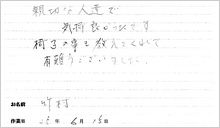 親切な人達で
気持良かったです
椅子の事も教えてくれて
有難うございました。
お名前 竹村
作業日 25年 6月 15日